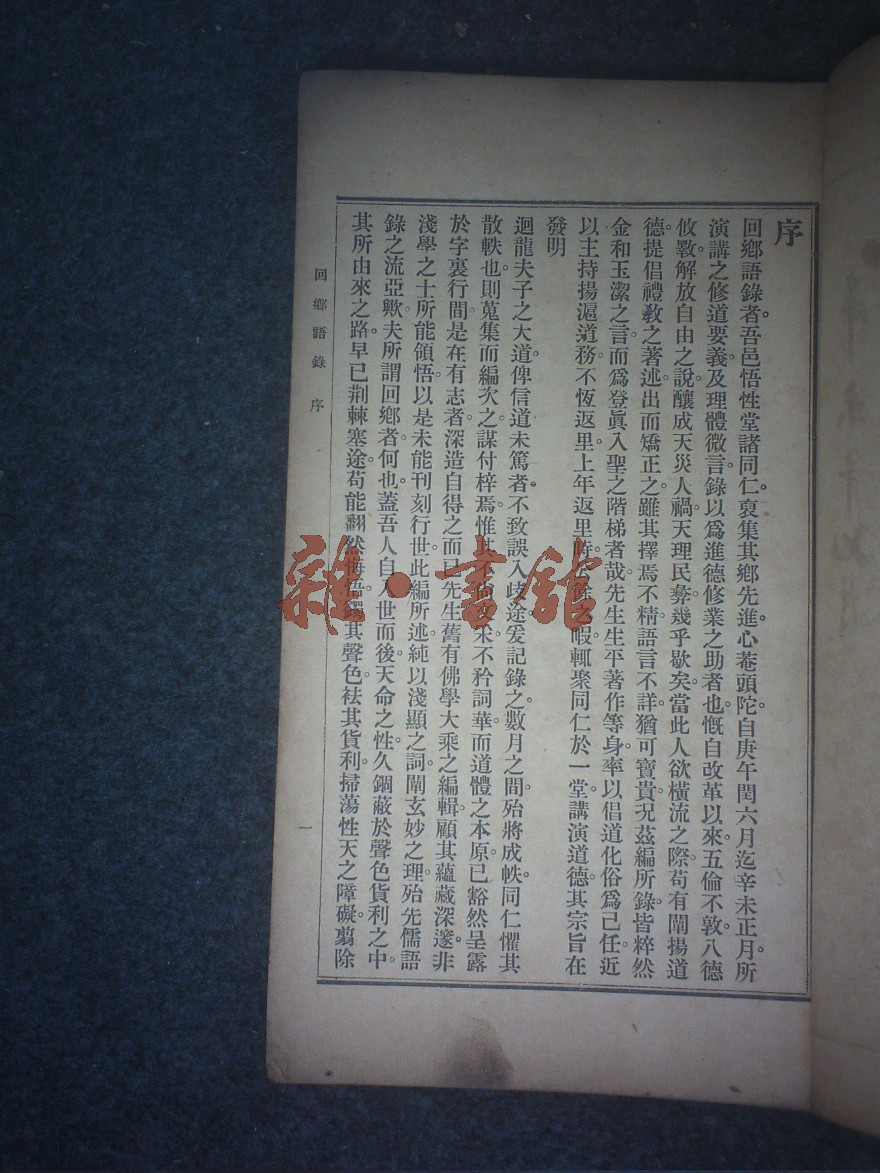 序
回鄉語錄者。吾邑悟性堂諸同仁。裒集其鄉先進心菴頭陀。自庚午閏六月迄辛未正月。所
演講之修道要義。及理體微言。錄以爲進德修業之助者也。慨自改革以來。五倫不敦。八德
攸斁。解放自由之說。釀成天災人禍。天理民彝。幾乎歇矣。當此人欲橫流之際。苟有闡揚道
德。提倡禮敎之著述。出而矯正之。雖其擇焉不精。語言不詳。猶可寶貴。况茲編所錄。皆粹然
金和玉潔之言。而爲登眞入聖之階梯者哉。先生生平著作等身。率以倡道化俗爲己任。近
以主持揚滬道務。不恆返里。上年返里時。公餘之暇。輒聚同仁於一堂。講演道德。其宗旨在
發明
迴龍夫子之大道。俾信道未篤者。不致誤入歧途。爰記錄之。數月之間。殆將成帙。同仁懼其
散軼也。則蒐集而編次之。謀付梓焉。惟其不尙文采。不矜詞華。而道體之本原。已豁然呈露
於字裏行間。是在有志者深造自得之而已。先生舊有佛學大乘之編輯。顧其蘊藏深邃。非
淺學之士所能領悟。以是未能刊刻行世。此編所述。純以淺顯之詞。闡玄妙之理。殆先儒語
錄之流亞歟。夫所謂回鄉者。何也。蓋吾人自入世而後。天命之性。久錮蔽於聲色貨利之中。
其所由來之路。早已荆棘塞途。苟能翻然悔悟。蠲其聲色。袪其貨利。掃蕩性天之障礙。翦除
回鄉語錄 序
一
雜·書館